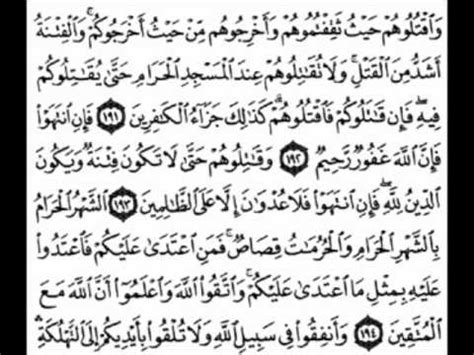 وَاقْتُلُوهُمْ حَيْثُ ثَقِفْتُمُوهُمْ وَأَخْرِجُوهُم مِّنْ حَيْثُ أَخْرَجُوكُمْ ۚ وَالْفِتْنَةُ
أَشَدُّ مِنَ الْقَتْلِ ۚ وَلَا تُقَاتِلُوهُمْ عِندَ الْمَسْجِدِ الْحَرَامِ حَتَّىٰ يُقَاتِلُوكُمْ
فِيهِ ۖ فَإِن قَاتَلُوكُمْ فَاقْتُلُوهُمْ ۗ كَذَٰلِكَ جَزَاءُ الْكَافِرِينَ ١٩١ فَإِنِ انتَهَوْا
فَإِنَّ اللَّهَ غَفُورٌ رَّحِيمٌ ١٩٢ وَقَاتِلُوهُمْ حَتَّىٰ لَا تَكُونَ فِتْنَةٌ وَيَكُونَ
الدِّينُ لِلَّهِ ۖ فَإِنِ انتَهَوْا فَلَا عُدْوَانَ إِلَّا عَلَى الظَّالِمِينَ ١٩٣ الشَّهْرُ الْحَرَامُ
بِالشَّهْرِ الْحَرَامِ وَالْحُرُمَاتُ قِصَاصٌ ۚ فَمَنِ اعْتَدَىٰ عَلَيْكُمْ فَاعْتَدُوا
عَلَيْهِ بِمِثْلِ مَا اعْتَدَىٰ عَلَيْكُمْ ۚ وَاتَّقُوا اللَّهَ وَاعْلَمُوا أَنَّ اللَّهَ مَعَ
الْمُتَّقِينَ ١٩٤ وَأَنفِقُوا فِي سَبِيلِ اللَّهِ وَلَا تُلْقُوا بِأَيْدِيكُمْ إِلَى التَّهْلُكَةِ ۛ